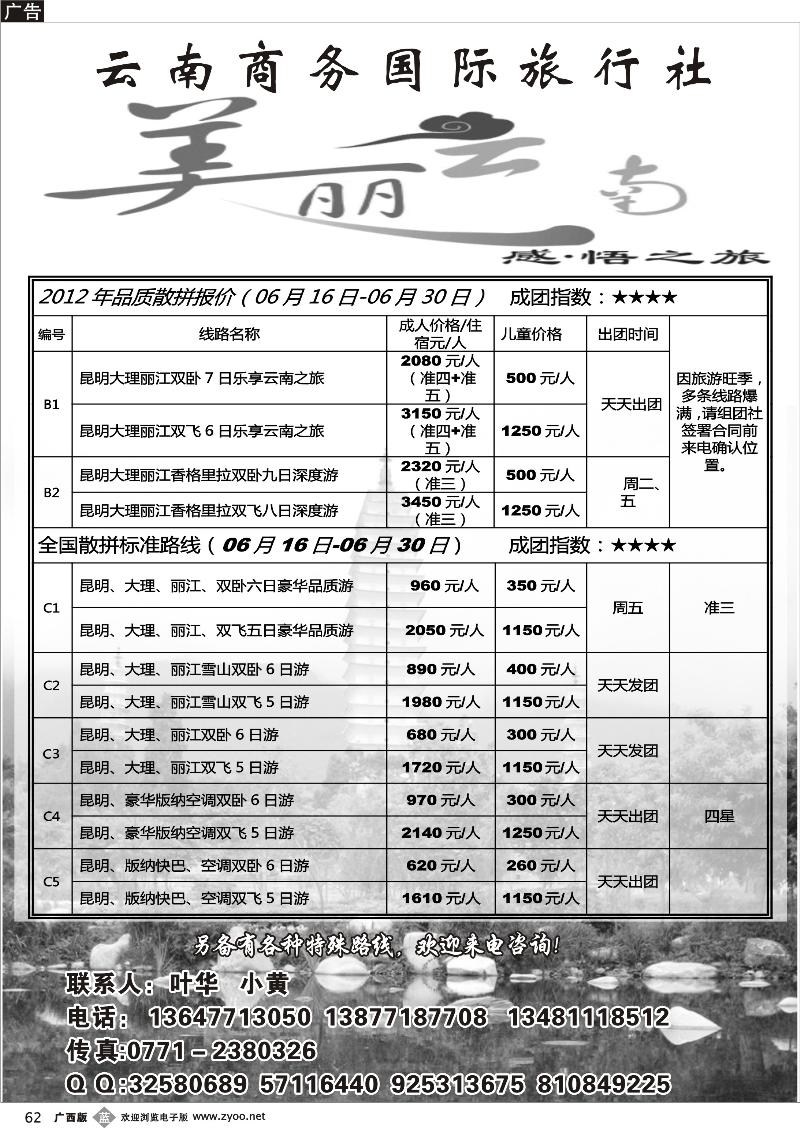 广告
云南商务国际旅行社
美丽云南
感·悟之旅
2012年品质散拼报价（06月16日-06月30日） 成团指数：★★★★
编号 线路名称 成人价格/住宿元/人 儿童价格 出团时间
B1 昆明大理丽江双卧7日乐享云南之旅 2080元/人（准四+准五） 500元/人 天天出团 因旅游旺季，多条线路爆满，请组团社签署合同前来电确认位置。
昆明大理丽江双飞6日乐享云南之旅 3150元/人（准四+准五） 1250元/人
B2 昆明大理丽江香格里拉双卧九日深度游 2320元/人（准三） 500元/人 周二、五
昆明大理丽江香格里拉双飞八日深度游 3450元/人（准三） 1250元/人
全国散拼标准路线（06月16日-06月30日） 成团指数：★★★★
C1 昆明、大理、丽江、双卧六日豪华品质游 960元/人 350元/人 周五 准三
昆明、大理、丽江、双飞五日豪华品质游 2050元/人 1150元/人
C2 昆明、大理、丽江雪山双卧6日游 890元/人 400元/人 天天发团
昆明、大理、丽江雪山双飞5日游 1980元/人 1150元/人
C3 昆明、大理、丽江双卧6日游 680元/人 300元/人 天天发团
昆明、大理、丽江双飞5日游 1720元/人 1150元/人
C4 昆明、豪华版纳空调双卧6日游 970元/人 300元/人 天天出团 四星
昆明、豪华版纳空调双飞5日游 2140元/人 1250元/人
C5 昆明、版纳快巴、空调双卧6日游 620元/人 260元/人 天天出团
昆明、版纳快巴、空调双飞5日游 1610元/人 1150元/人
另备有各种特殊路线，欢迎来电咨询！
联系人：叶华 小黄
电话： 13647713050 13877187708 13481118512
传真:0771－2380326
Q Q:32580689 57116440 925313675 810849225
62 广西版 蓝 欢迎浏览电子版 www.zyoo.net